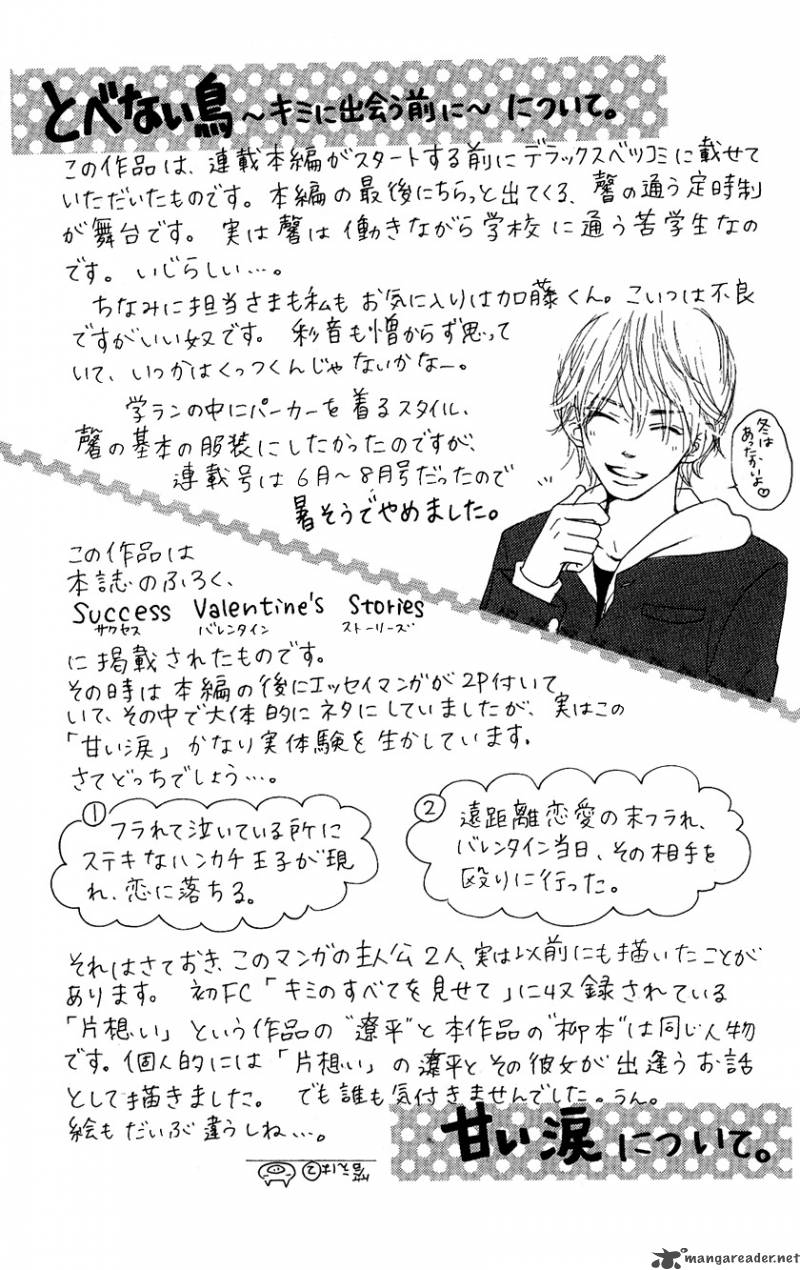 とべない鳥 〜キミに出会う前に〜 について。
この作品は、連載本編がスタートする前にデラックスベツコミに載せて
いただいたものです。本編の最後にちらっと出てくる、馨の通う定時制
が舞台です。実は馨は働きながら学校に通う苦学生なの
です。いじらしい…。
ちなみに担当さまも私もお気に入りは加藤くん。こいつは不良
ですがいい奴です。彩音も憎からず思って
いて、いつかはくっつくんじゃないかなー。
学ランの中にパーカーを着るスタイル、
馨の基本の服装にしたかったのですが、
連載号は6月〜8月号だったので
暑そうでやめました。
冬は
あったかいよ♡
この作品は
本誌のふろく、
Success Valentine's Stories
サクセス バレンタイン ストーリーズ
に掲載されたものです。
その時は本編の後にエッセイマンガが2P付いて
いて、その中で大体的にネタにしていましたが、実はこの
「甘い涙」かなり実体験を生かしています。
さてどっちでしょう…。
① フラれて泣いている所に
ステキなハンカチ王子が現
れ、恋に落ちる。
② 遠距離恋愛の末フラれ、
バレンタイン当日、その相手を
殴りに行った。
それはさておき、このマンガの主人公2人、実は以前にも描いたことが
あります。初FC「キミのすべてを見せて」に収録されている
「片想い」という作品の"遼平"と本作品の"柳本"は同じ人物
です。個人的には「片想い」の遼平とその彼女が出逢うお話
として描きました。でも誰も気付きませんでした。うん。
絵もだいぶ違うしね…。
甘い涙 について。
mangareader.net